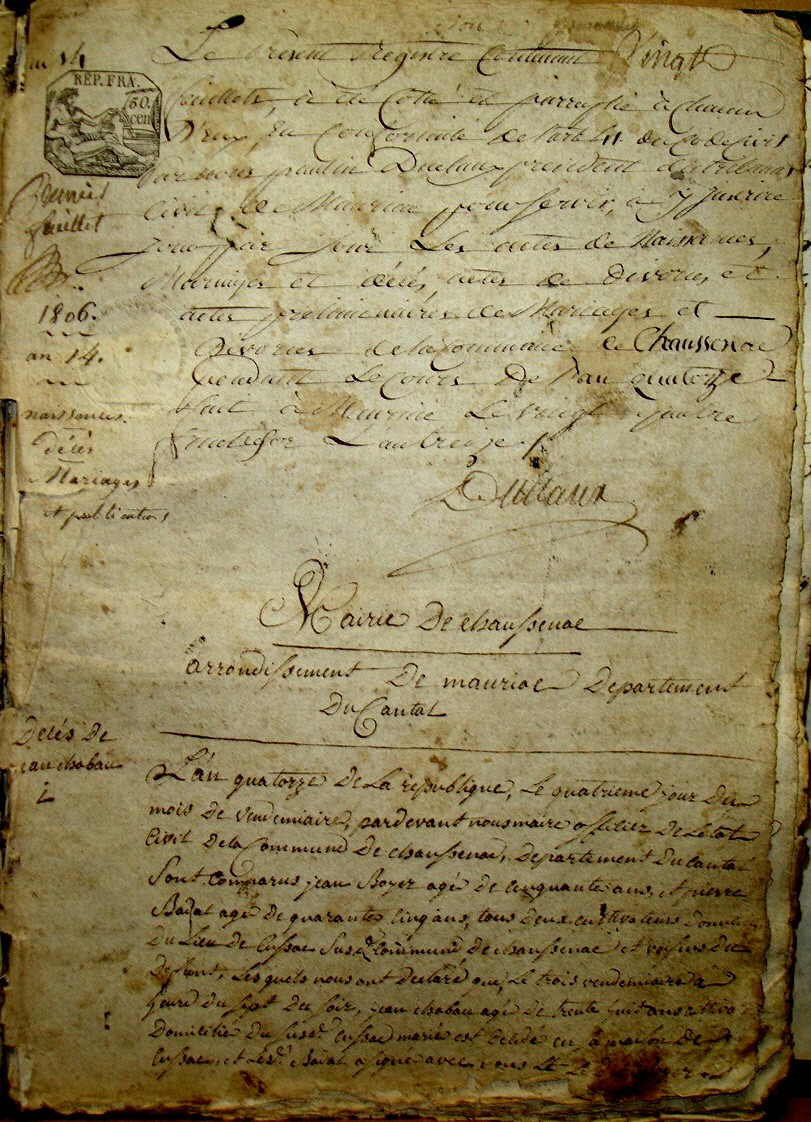 an 14
Le présent Registre Contenant Vingt
REP. FRA.
50.
cen
feuillets, a été Cotté et parraphé à chacun
D'eux, En Conformité de l'art. du Code Civil
Par nous paulin Duclaux president du tribunal
Dernier
feuillet
Civil de Mauriac pour servir, a y Inscrire
jour par jour Les actes de Naissances,
Mariages et décés, actes de Divorces, et
1806.
actes préliminaires de Mariages et
an 14.
Divorces de la Commune de Chaussenac
pendant Le Cours De l'an quatorze
naissances.
fait à Mauriac Le vingt quatre
décés
fructidor L'an treize /.
Mariages
et publications
Duclaux
Mairie De chaussenac
arrondissement De mauriac Departement
Du Cantal
Decés de
jean chabau
1
L'an quatorze De La republique, Le quatrieme jour Du
mois de vendemiaire, pardevant nous maire officier De Letat
Civil De la Commune De chaussenac, Departement Du Cantal
Sont Comparus jean Boyer agé De Cinquante ans, et pierre
Badal agé De quarante Cinq ans, tous Deux Cultivateurs
Du Lieu De Cussac Commune De chaussenac et voisins Du
Defunt, Lesquels nous ont Declaré que, Le trois vendemiaire à
heure Du sept Du soir, jean chabau agé De trente huit ans
Domicilié Du susd. Cussac marié est Decédé en sa maison De
Cussac, et Lesd. Badal a signé avec nous